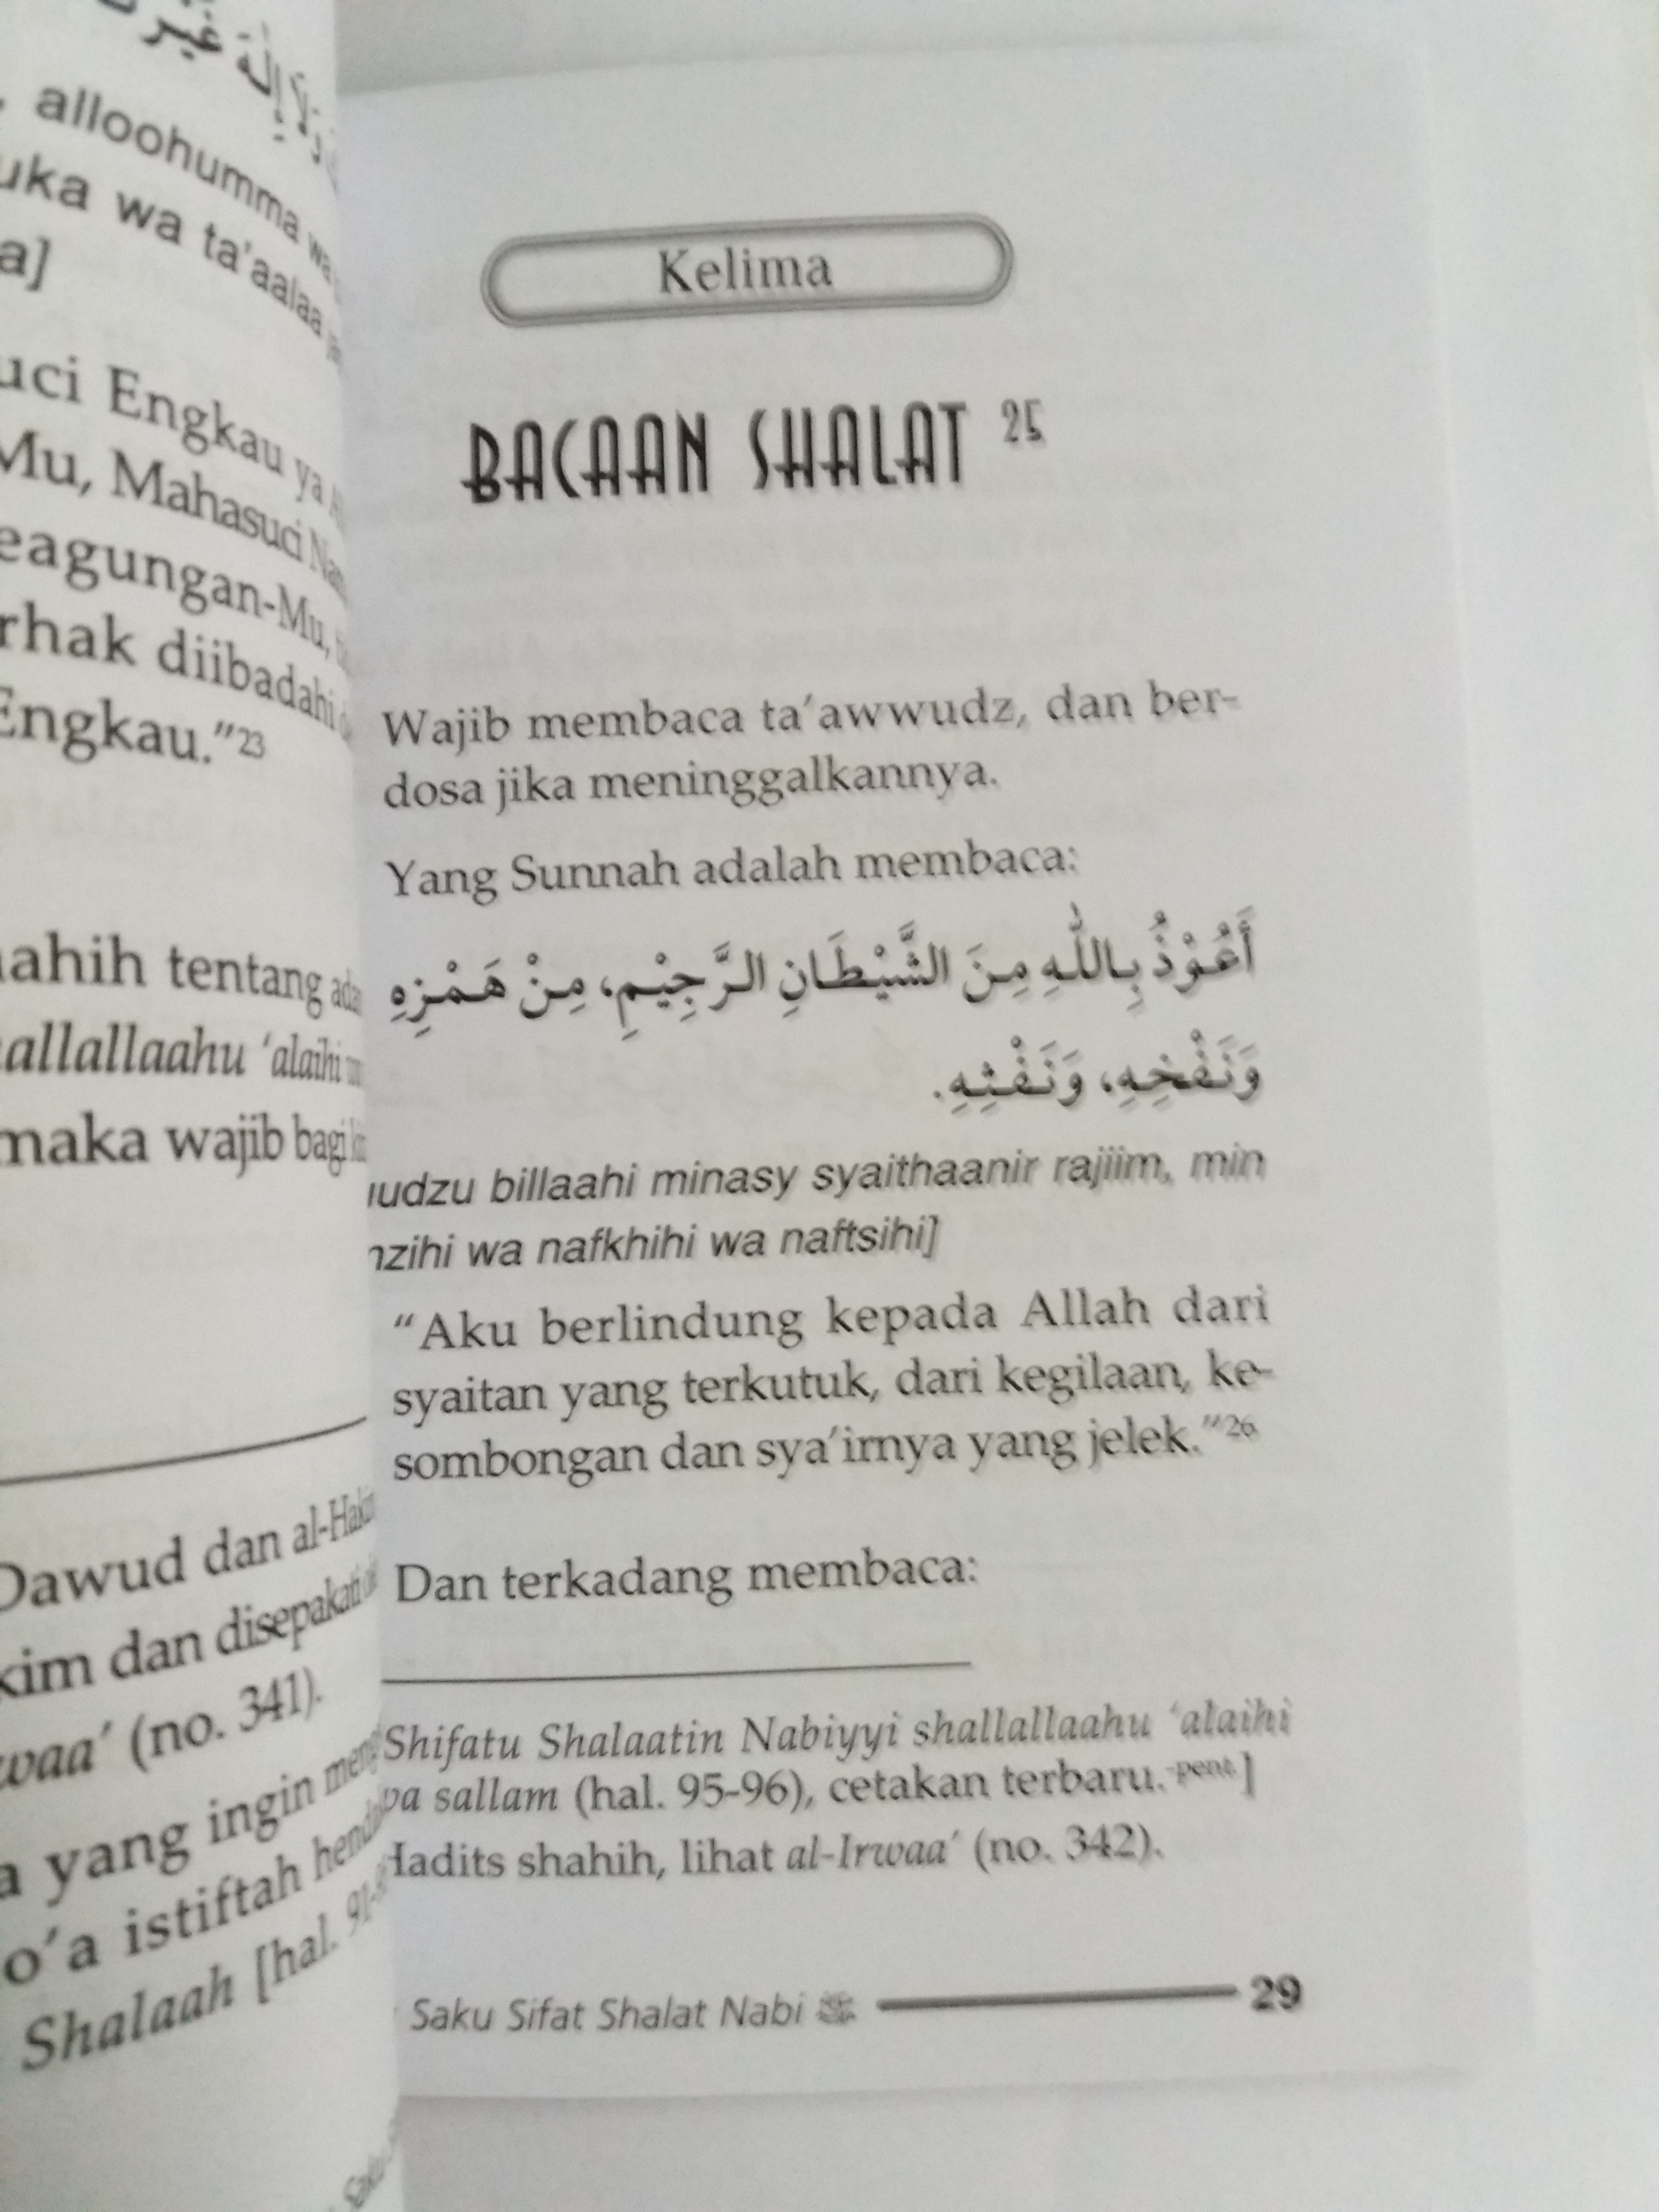 غَيْرُ
وَلَا إِلٰهَ
alloohumma wa
uka wa ta'aalaa
a]
uci Engkau ya
Mu, Mahasuci
eagungan-Mu,
rhak diibadahi
Engkau."23
ahih tentang
allallaahu 'alaihi
maka wajib bagi
Dawud dan al-Hakim
kim dan disepakati
waa' (no. 341).
a yang ingin
o'a istiftah
Shalaah [hal.
Kelima
BACAAN SHALAT 25
Wajib membaca ta'awwudz, dan ber-
dosa jika meninggalkannya.
Yang Sunnah adalah membaca:
أَعُوْذُ بِاللّٰهِ مِنَ الشَّيْطَانِ الرَّجِيْمِ، مِنْ هَمْزِهِ
وَنَفْخِهِ، وَنَفْثِهِ.
udzu billaahi minasy syaithaanir rajiim, min
zihi wa nafkhihi wa naftsihi]
"Aku berlindung kepada Allah dari
syaitan yang terkutuk, dari kegilaan, ke-
sombongan dan sya'irnya yang jelek."26
Dan terkadang membaca:
Shifatu Shalaatin Nabiyyi shallallaahu 'alaihi
wa sallam (hal. 95-96), cetakan terbaru.-pent.]
Hadits shahih, lihat al-Irwaa' (no. 342).
Saku Sifat Shalat Nabi ﷺ 29
Saku